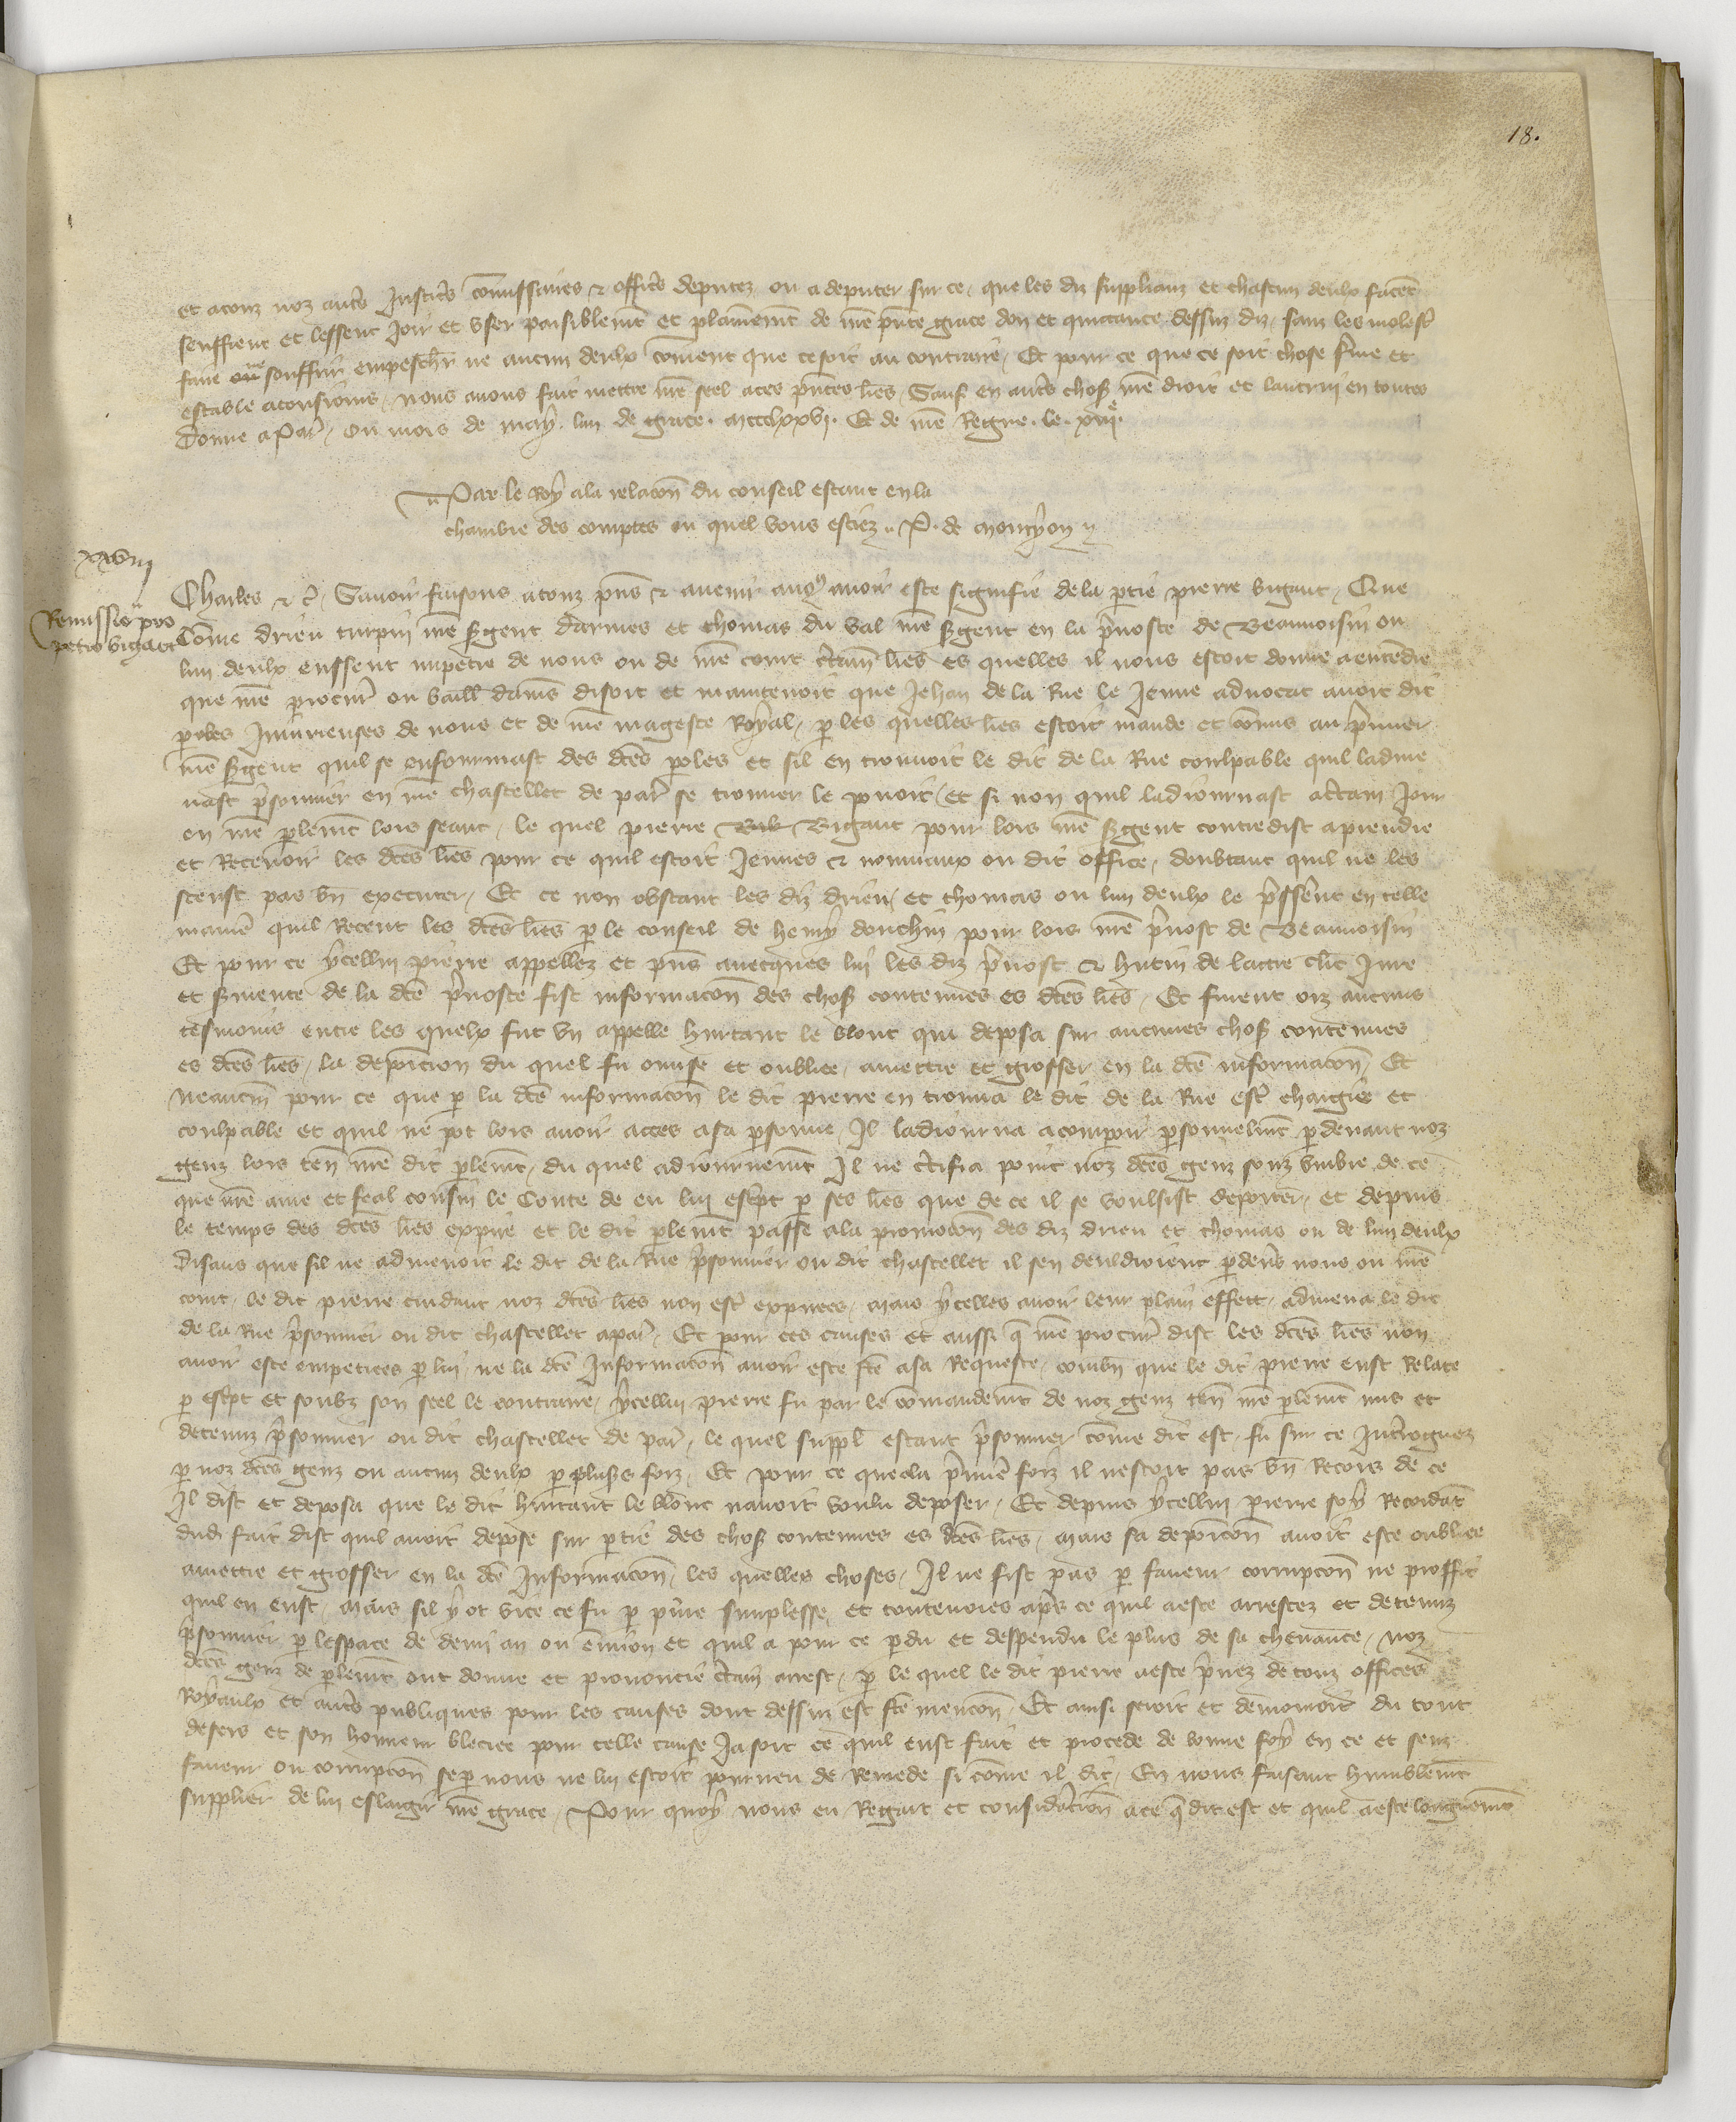 18.
et a touz noz autres Justiciers co͞missaires & officiers deputez ou a deputer sur ce, que les diz supplianz et chascun deulx facent
seuffrent et lessent Joir et vser paisiblem̅t et plainnement de n͞re p͞nte grace don et quictance dessuz diz, sanz les molester
faire ne souffrir empeschier ne aucun deulx co͞ment que ce soit au contraire, Et pour ce que ce soit chose ferme et
estable a tousiours, nous auons fait mettre n͞re seel a ces p͞ntes l͞res, Sauf en autres choses n͞re droit et lautrui en toutes
Donne a Paris, Ou mois de may, lan de grace. mccclxxvj. Et de n͞re Regne. le. xiije.
Par le Roy a la relac͞on du conseil estant en la
chambre des comptes ou quel vous estiez. P. de Moncyon
xxviij
Remissio pro
petro bigant
Charles & c͞, Sauoir faisons a touz p͞ns & auenir a nous auoir este signifie de la partie pierre bigant, Que
Co͞me drieu turpin n͞re sergent darmes et thomas du val n͞re sergent en la preuoste de Beauuoisin ou
lun deulx eussent impetre de nous ou de n͞re court certain͞ l͞res es quelles il nous estoit donne a entendre
que n͞re procureur ou baill͞ damiens disoit et maintenoit que Jehan de la Rue le Jeune aduocat auoit dit
paroles Iniurieuses de nous et de n͞re mageste Royal, par les quelles l͞res estoit mande et co͞mis au premier
n͞re sergent quil se enfourmast des d͞ces paroles et sil en trouuoit le dit de la Rue coulpable quil ladme
nast prisonnier en n͞re chastellet de paris se trouuer le pouoit, et si non quil ladiournast a certain Jour
en n͞re parlem̅t lors seant, le quel pierre Bigant pour lors n͞re sergent contredist a prendre
et Receuoir les d͞ces l͞res pour ce quil estoit Jeunes & nouuiaux ou dit office, doubtant quil ne les
sceust pas bn͞ executer, Et ce non obstant les diz drieu, et thomas ou lun deulx le presserent en telle
maniere quil Receut les d͞ces l͞res par le conseil de henry douchin pour lors n͞re preuost de Beauuoisin
Et pour ce ycellui pierre appellez et p͞ns auecques lui les diz preuost & hutin de lattre clerc Jure
et sermente de la d͞ce preuoste fist informac͞on des choses contenues es d͞ces l͞res, Et furent oiz aucuns
tesmoins entre les quelx fut vn appelle hurtaut le blont qui deposa sur aucunes choses contenues
es d͞ces l͞res, la deposicion du quel fu omise et oubliee, a mettre et grosser en la d͞ce informac͞on, Et
Neantm͞ pour ce que par la d͞ce informac͞on le dit pierre en trouua le dit de la Rue estre chargie et
coulpable et quil ne pot lors auoir acces a sa personne, Il ladiourna a comparoir personnelm̅t par deuant noz
genz lors ten͞ n͞re dit parlem̅t, du quel adiournem̅t Il ne certifia point noz d͞ces genz souz vmbre de ce
que n͞re ame et feal cousin le Conte de eu lui escript par ses l͞res que de ce il se voulsist deporter, et depuis
le temps des d͞ces l͞res expire et le dit parlem̅t passe a la promoc͞on des diz drieu et thomas ou de lun deulx
disans que sil ne admenoit le dit de la Rue prisonnier ou dit chastellet il sen deuldroient par deuers nous ou n͞re
court, le dit pierre cuidant noz d͞ces l͞res non estre expirees, mais ycelles auoir leur plain effect, admena le dit
de la Rue prisonnier ou dit chastellet a paris, Et pour ces causes et aussi q͞ n͞re procureur dist les d͞ces l͞res non
auoir este empetrees par lui, ne la d͞ce Informac͞on auoir este f͞te a sa Requeste, combn͞ que le dit pierre eust Relate
par escript et soubz son seel le contraire, ycellui pierre fu par le co͞mandem̅t de noz genz ten͞ n͞re parlem̅t mis et
detenuz prisonnier ou dit chastellet de paris, le quel suppl͞ estant prisonnier co͞me dit est, fu sur ce Interroguez
par noz d͞ces genz ou aucun deulx par plusieurs foiz, Et pour ce que a la premiere foiz il nestoit pas bn͞ Recors de ce
Il dist et deposa que le dit hurtaut le blont nauoit voulu deposer, Et depuis ycellui pierre soy Recordant
dudi fait dist quil auoit depose sur partie des choses contenues es d͞ces l͞res, mais sa deposic͞on auoit este oubliee
a mettre et grosser en la d͞ce Informac͞on, les quelles choses, Il ne fist pas par faueur corrupc͞on ne proffit
quil en eust, mais sil y ot vice ce fu par pure simplesse, et toutevoies apres ce quil a este arrestez et detenuz
prisonnier par lespace de demi an ou enuiron et quil a pour ce perdu et despendu le plus de sa cheuance, noz
d͞ces genz de parlem̅t ont donne et prononcie certain arrest, par le quel le dit pierre a este priuez de touz offices
Royaulx et autres publiques pour les causes dont dessuz est f͞te menc͞on, Et ainsi seroit et demourroit du tout
desers et son honneur bleciee pour telle cause Ja soit ce quil eust fait et procede de bonne foy en ce et senz
faueur ou corrupc͞on se par nous ne lui estoit pourueu de Remede si co͞me il dit, En nous faisant humblem̅t
supplier de lui eslargir n͞re grace, Pour quoy nous eu Regart et consideracion a ce q͞ dit est et quil a este longuement